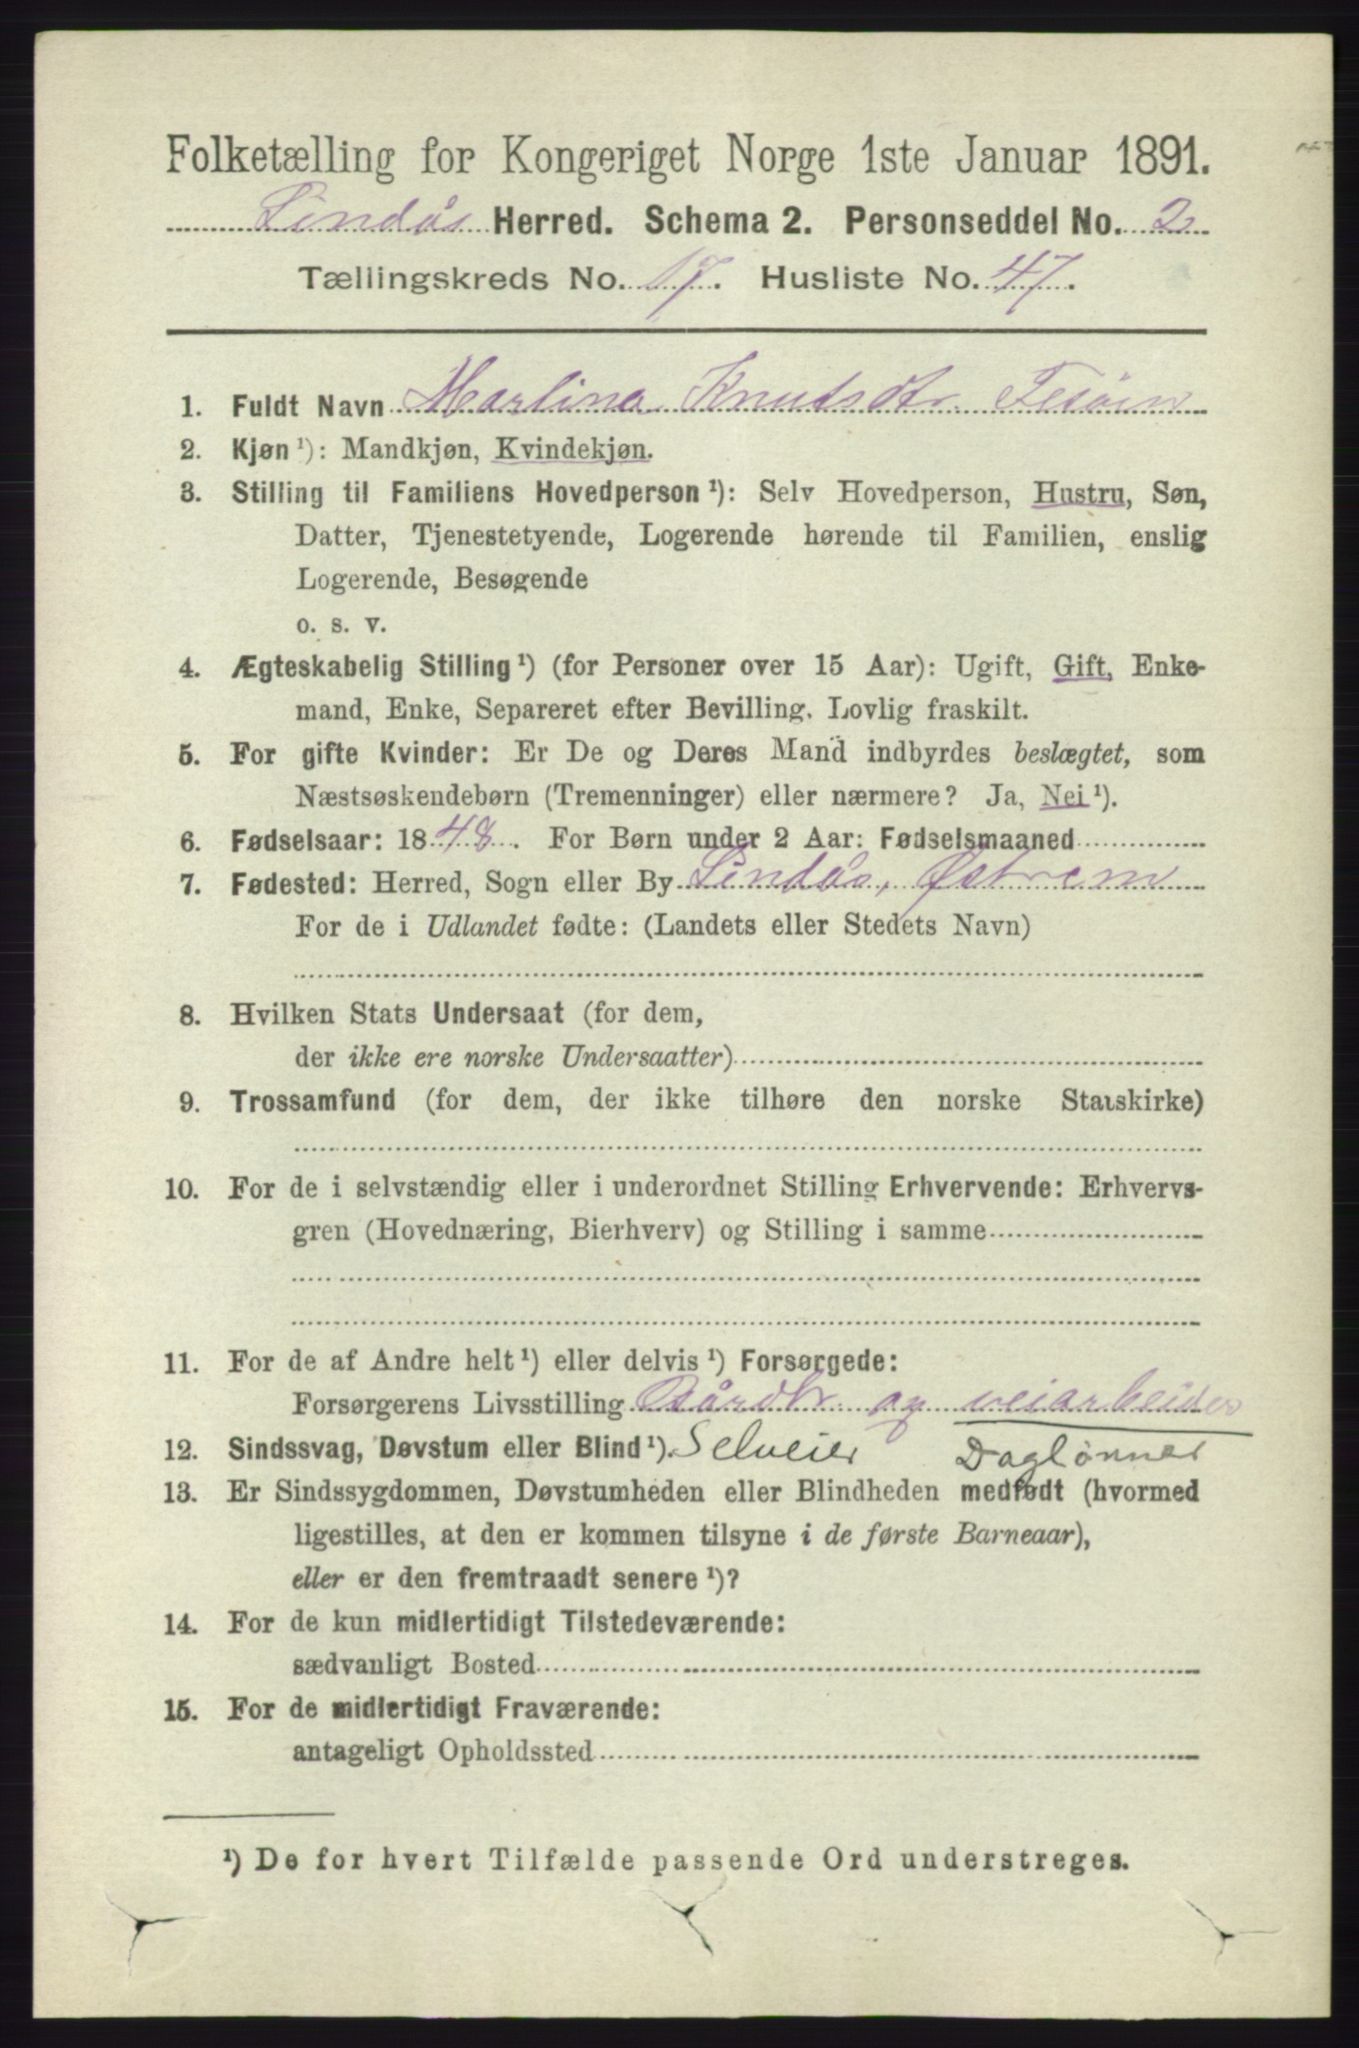 Folketælling for Kongeriget Norge 1ste Januar 1891.
Lindås Herred. Schema 2. Personseddel No. 2
Tællingskreds No. 17. Husliste No. 47.
1. Fuldt Navn Marlina Knutsdtr.
2. Kjøn ¹): Mandkjøn, Kvindekjøn.
3. Stilling til Familiens Hovedperson ¹): Selv Hovedperson, Hustru, Søn,
Datter, Tjenestetyende, Logerende hørende til Familien, enslig
Logerende, Besøgende
o. s. v.
4. Ægteskabelig Stilling ¹) (for Personer over 15 Aar): Ugift, Gift, Enke-
mand, Enke, Separeret efter Bevilling. Lovlig fraskilt.
5. For gifte Kvinder: Er De og Deres Mand indbyrdes beslægtet, som
Næstsøskendebørn (Tremenninger) eller nærmere? Ja, Nei ¹).
6. Fødselsaar: 1848. For Børn under 2 Aar: Fødselsmaaned
7. Fødested: Herred, Sogn eller By Lindås, Østrem
For de i Udlandet fødte: (Landets eller Stedets Navn)
8. Hvilken Stats Undersaat (for dem,
der ikke ere norske Undersaatter)
9. Trossamfund (for dem, der ikke tilhøre den norske Statskirke)
10. For de i selvstændig eller i underordnet Stilling Erhvervende: Erhvervs-
gren (Hovednæring, Bierhverv) og Stilling i samme
11. For de af Andre helt ¹) eller delvis ¹) Forsørgede:
Forsørgerens Livsstilling Gårdbr. og veiarbeider
12. Sindssvag, Døvstum eller Blind ¹). Selveier Dagtlønner
13. Er Sindssygdommen, Døvstumheden eller Blindheden medfødt (hvormed
ligestilles, at den er kommen tilsyne i de første Barneaar),
eller er den fremtraadt senere ¹)?
14. For de kun midlertidigt Tilstedeværende:
sædvanligt Bosted
15. For de midlertidigt Fraværende:
antageligt Opholdssted
¹) De for hvert Tilfælde passende Ord understreges.